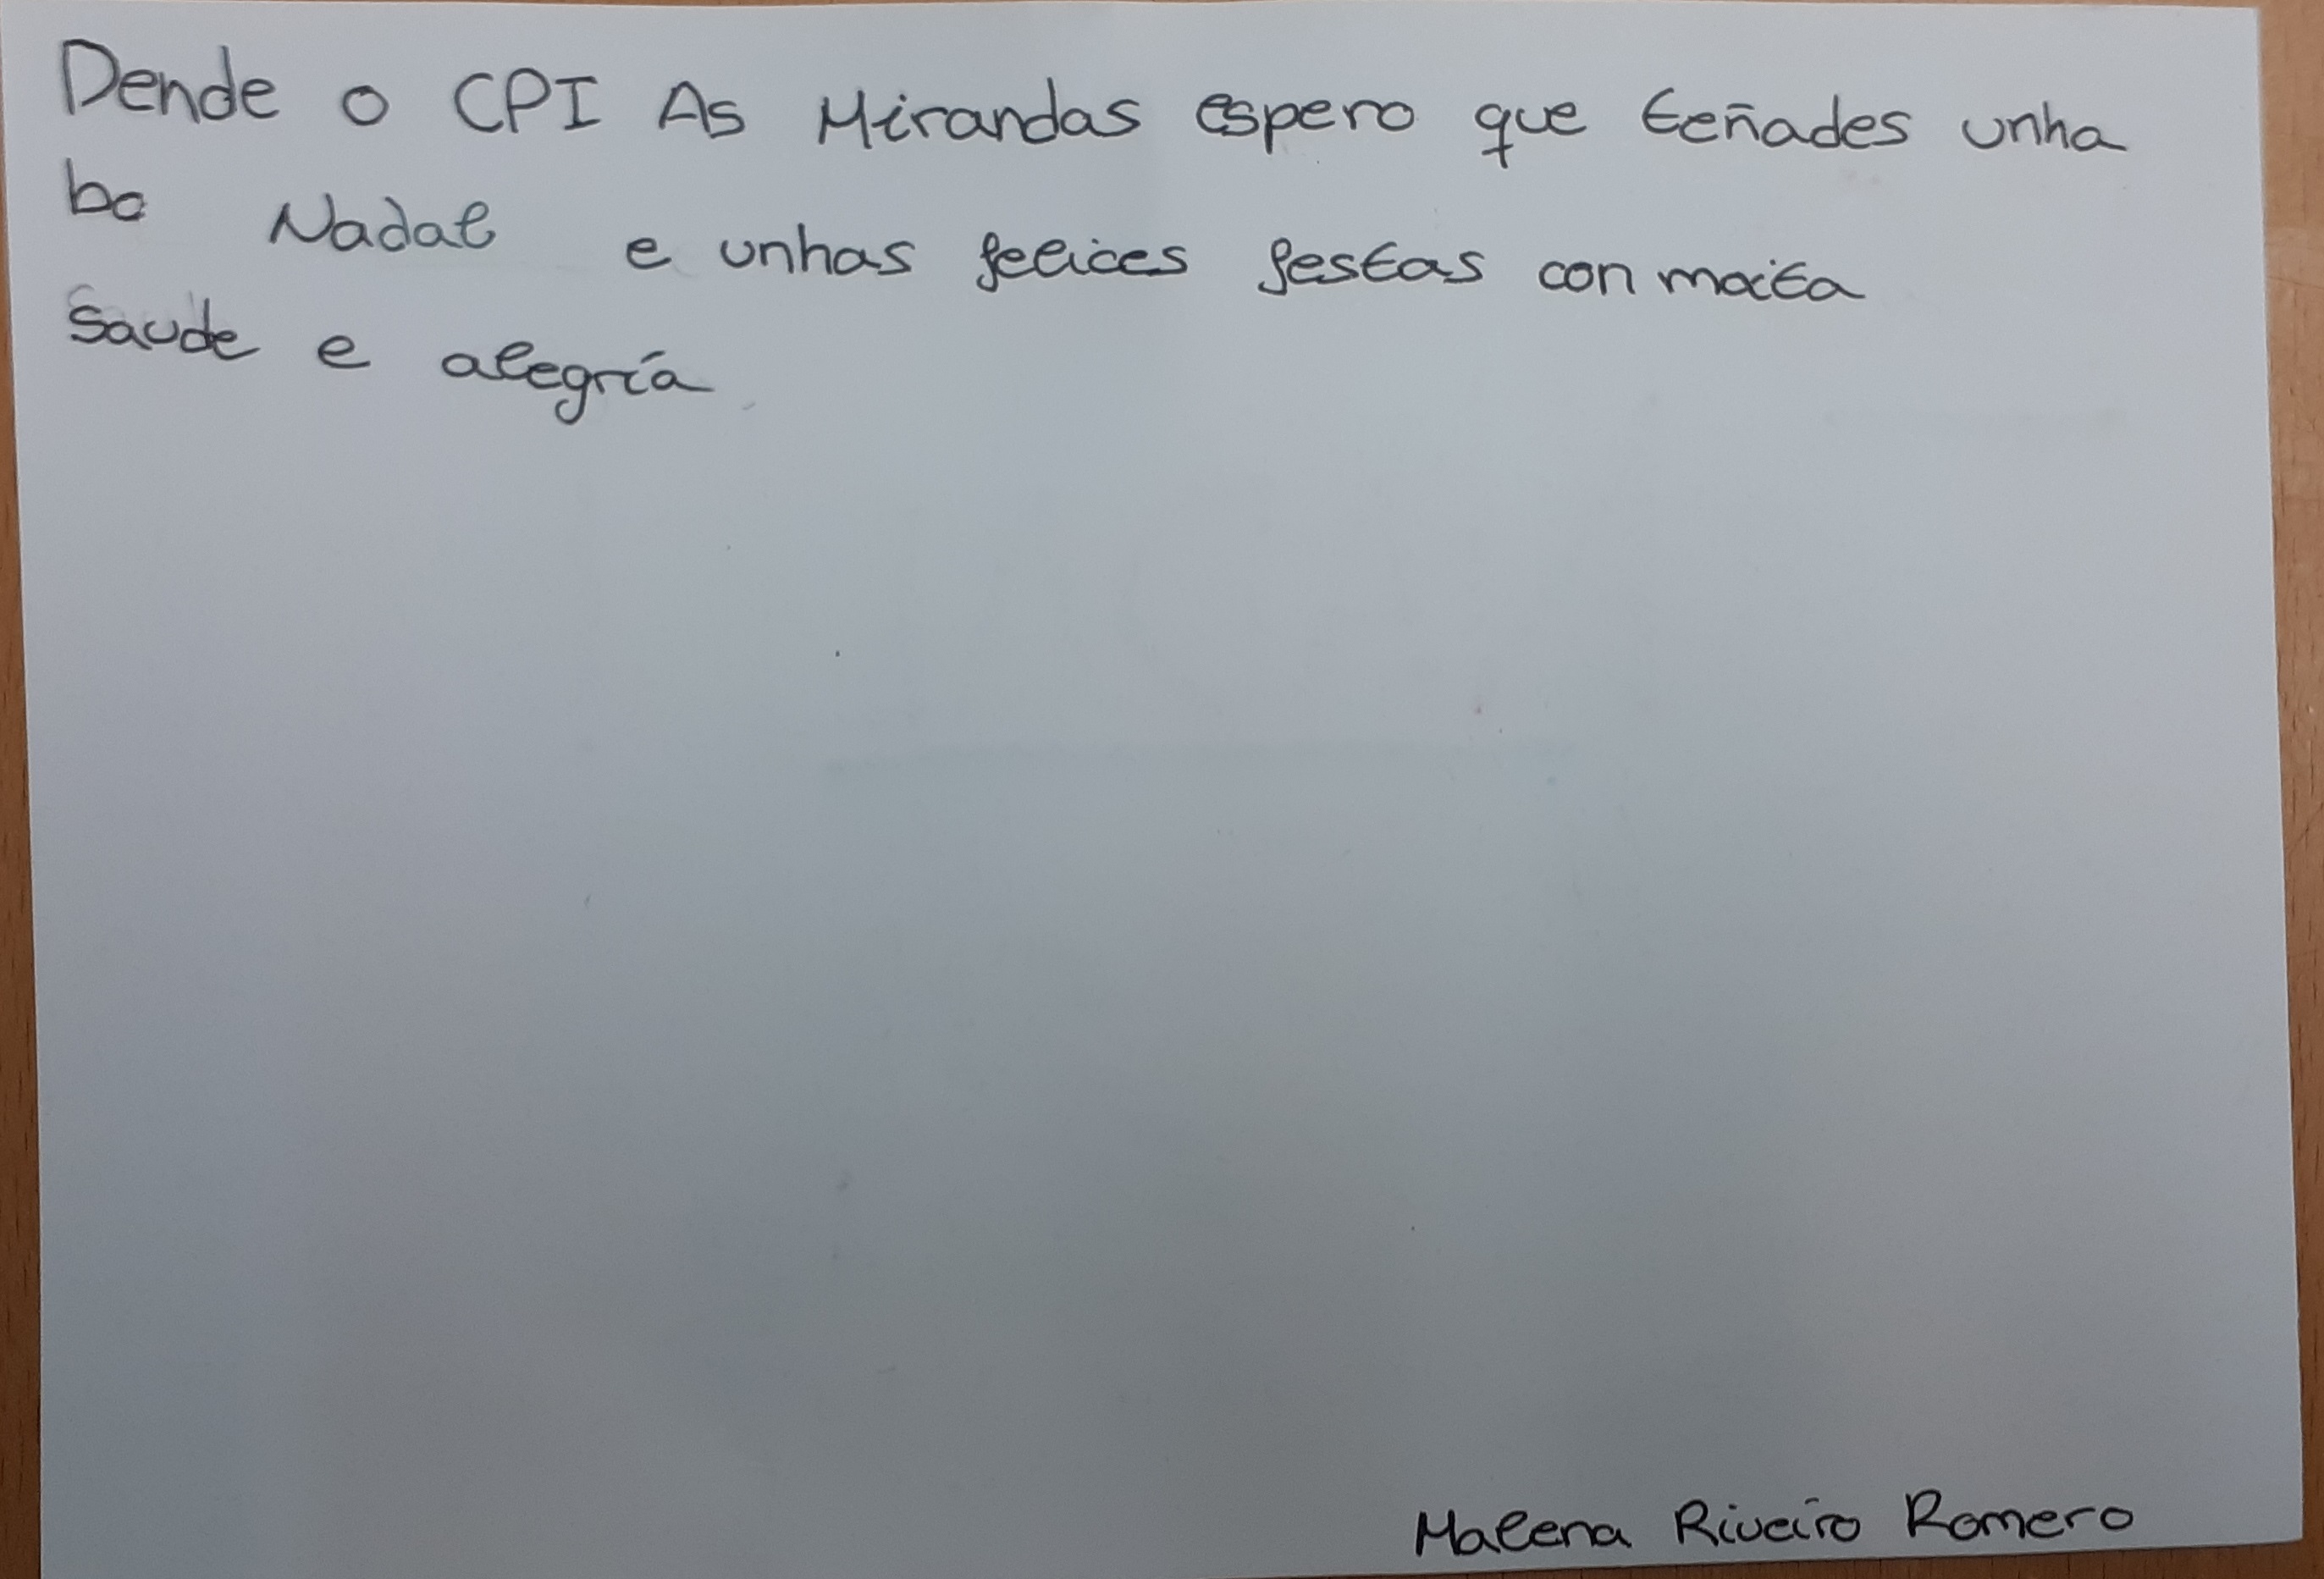 Dende o CPI As Mirandas espero que teñades unha
bo Nadal e unhas felices festas con moita
Saude e alegría
Malena Riveiro Romero